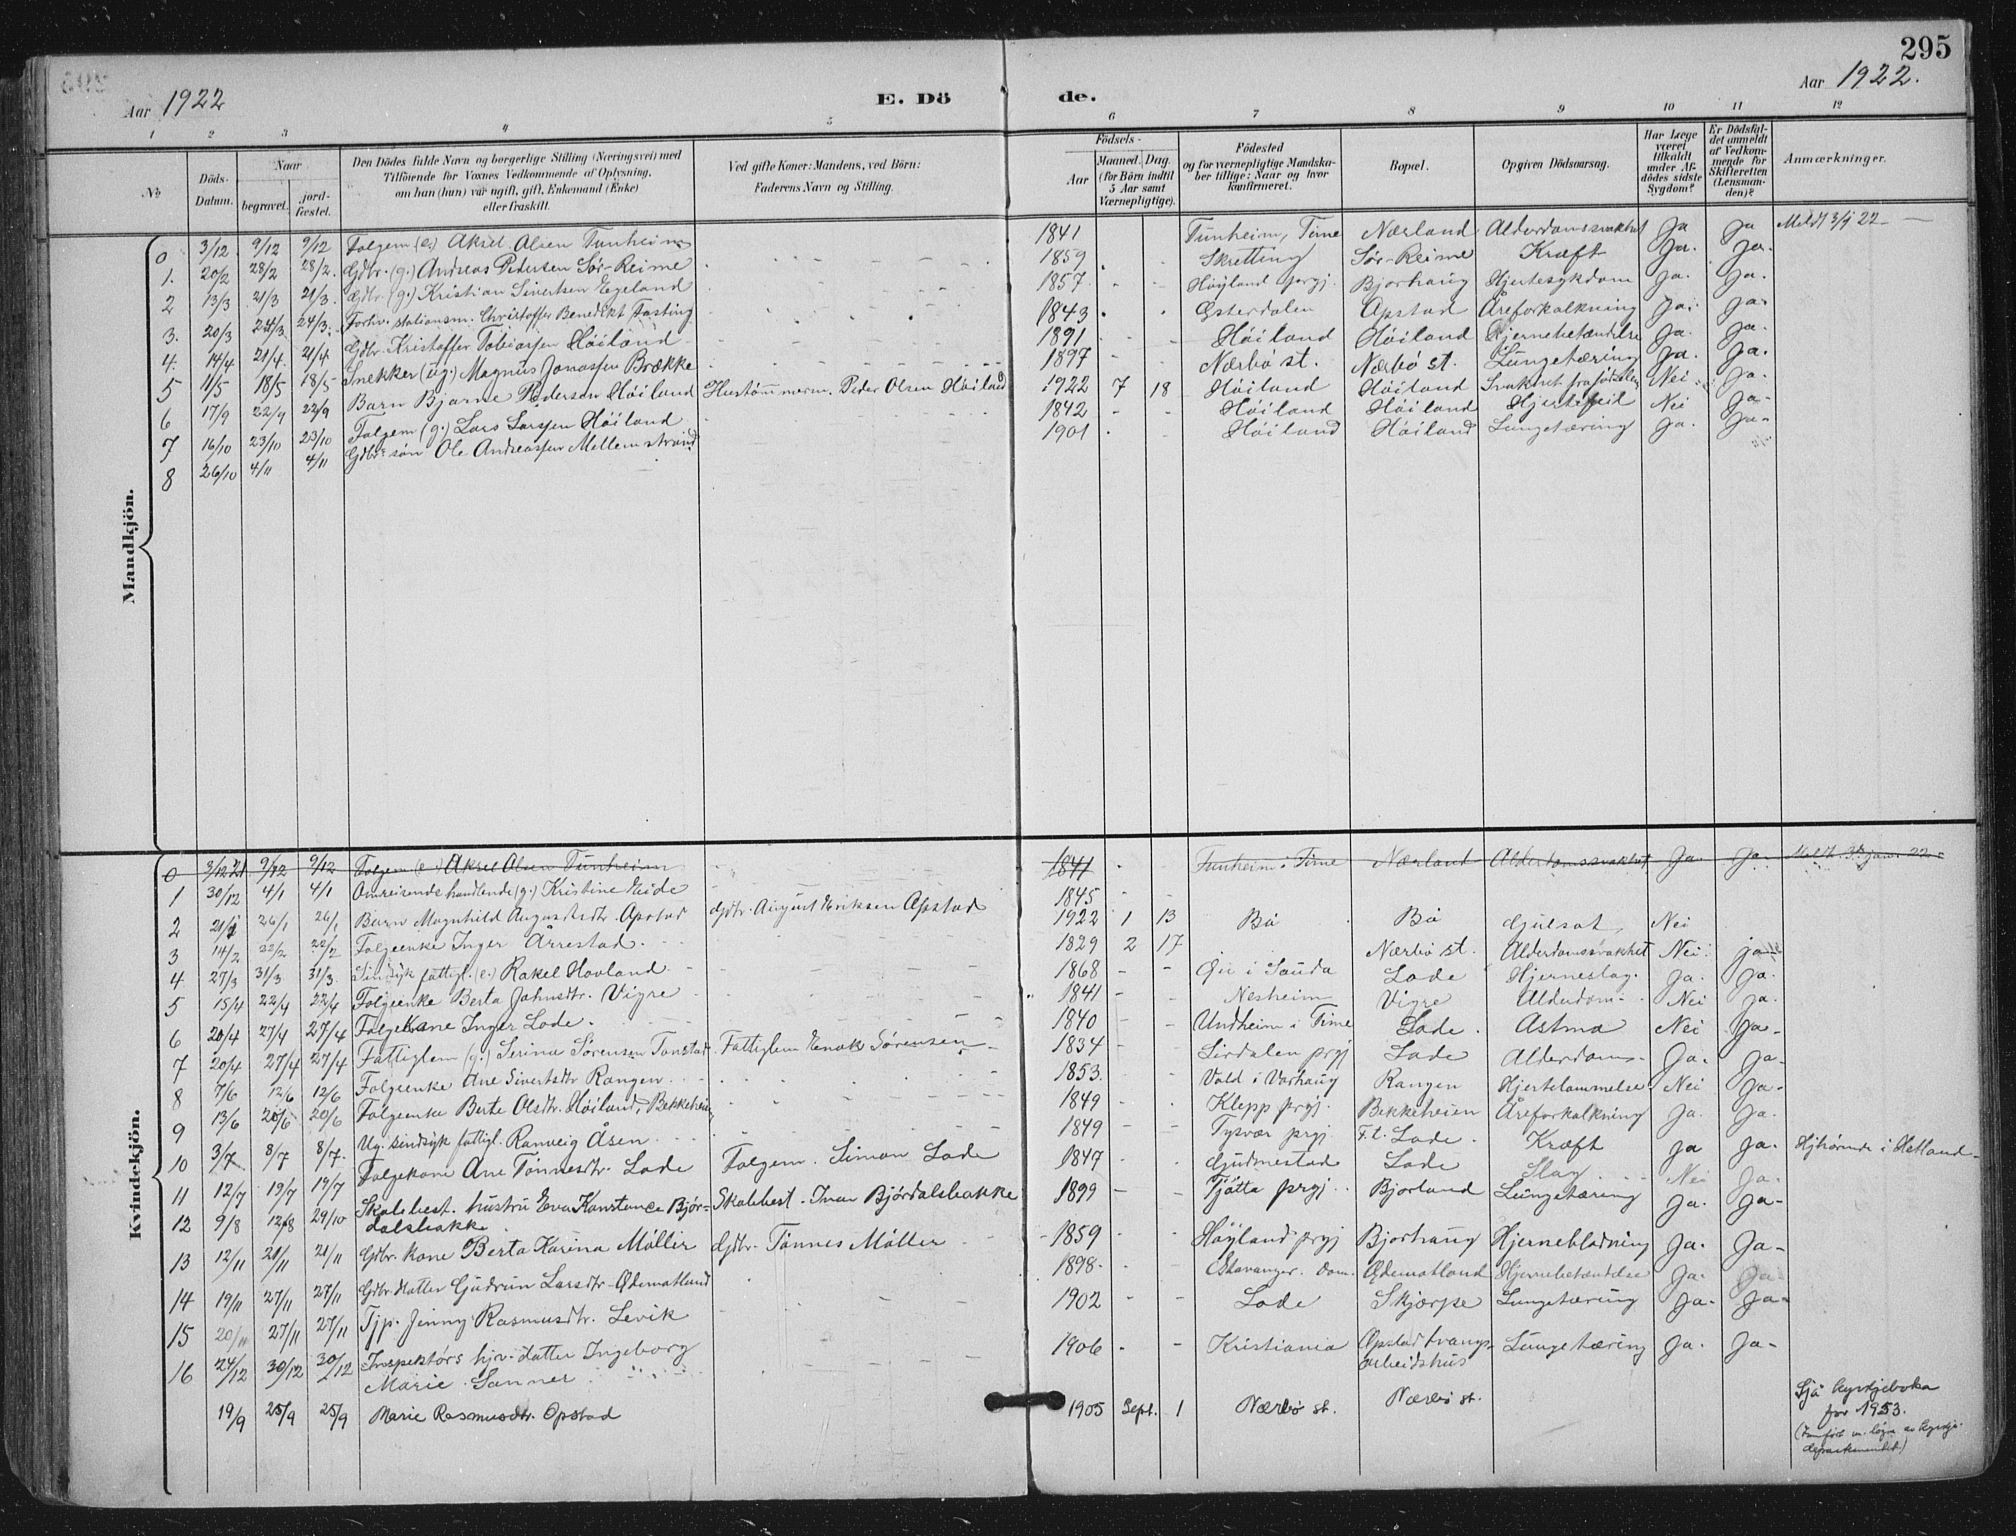 295
Aar 1922
E. Dö
de.
Aar 1922.
1 2 3 4 5 6 7 8 9 10 11 12
No
Döds-Datum.
Naar
begravet.
jord-fæstet.
Den Dödes fulde Navn og borgerlige Stilling (Næringsvei) med
Tilföiende for Voxnes Vedkommende af Oplysning,
om han (hun) var ugift, gift, Enkemand (Enke)
eller fraskilt.
Ved gifte Koner: Mandens, ved Börn:
Faderens Navn og Stilling.
Födsels-
Aar
Maaned. Dag.
(for Börn indtil
5 Aar samt
Værnepligtige).
Födested
og for værnepligtige Mandska-
ber tillige: Naar og hvor
konfirmeret.
Bopæl.
Opgiven Dödsaarsag.
Har Læge
været
tilkaldt
under Af-
dödes sidste
Sygdom?
Er Dödsfal-
det anmeldt
af Vedkom-
mende for
Skifteretten
(Lensman-
den)?
Anmærkninger.
Mandkjön.
0 3/12 9/12 9/12 Folgem (e.) Aksel Olsen Tunheim 1841 Tunheim, Time Nærland Alderdomssvakhet Ja Ja Meldt 3/1 22
1. 20/2 28/2 28/2. Gdbr. (g.) Andreas Pedersen Sör-Reime 1859 Skretting Sör-Reime Kræft Ja. Ja.
2 13/3 21/3 21/3. Gdbr. (g.) Kristian Sivertsen Egeland 1857 Höiland prgj. Bjorhaug Hjertesykdom Ja. Ja.
3. 20/3 24/3 24/3. Forhv. stationsm. Christoffer Benedikt Fasting 1843 Österdalen Opstad Åreforkalkning Ja. Ja.
4. 14/4 21/4. 21/4. Gdbr. Kristoffer Tobiassen Höiland 1891 Höiland Höiland Hjernebetændelse Ja. Ja.
5 11/5 18/5 18/5 Snekker (ug.) Magnus Jonassen Brække 1897 Nærbö st. Nærbö st. Lungetæring Ja. Ja.
6 17/9 22/9 22/9 Barn Bjarne Pedersen Höiland Hustömmerm. Peder Olsen Höiland 1922 7 18 Höiland Höiland Svakhet fra födselen Nei Ja.
7 16/10 23/10 23/10 Folgem (g.) Lars Larsen Höiland 1842 Höiland Höiland Hjertefeil Nei Ja-
8 26/10 4/11 4/11 Gdbr. sön Ole Andreassen Mellemstrand 1901 Höiland Höiland Lungetæring Ja. Ja-
Kvindekjön.
0 3/12 21 9/12 9/12 Folgem (e.) Aksel Olsen Tunheim 1841 Tunheim i Time Nærland Alderdomssvakhet Ja Ja. Meldt 3. jan. 22
1 30/12 4/1 4/1 Omreisende handlende (g.) Kristine Eide 1845
2 21/1 26/1 26/1 Barn Magnhild Augustsdtr. Opstad Gdbr. August Eriksen Opstad 1922 1 13 Bö Bö Gulsot, Nei
3 14/2 22/2 22/2 Folgeenke Inger Årrestad. 1829 2 17 Nærbö st. Alderdomssvakhet Nei ja
4 27/3 31/3 31/3. Sindsyk fattigl. (e.) Rakel Hovland 1868 i Sauda Lode Hjerneslag. Ja. Ja.
5 15/4 22/4 22/4 Folgeenke Berta Johnsdtr. Vigre 1841 Nesheim Vigre Alderdom Nei Ja.
6 20/4 27/4 27/4 Folgekone Inger Lode. 1840 Undheim i Time Lode. Astma Nei Ja-
7 20/4 27/4 27/4 Fattiglem (g.) Serina Sörensen Tonstad Fattiglem Enok Sörensen 1834 Sirdalen prgj Lode Alderdom Ja. Ja-
8 7/6 12/6 12/6 Folgeenke Ane Sivertsdtr Rangen 1853. Vold i Varhaug Rangen Hjertelammelse Nei Ja-
9 13/6 20/6 20/6 Folgeenke Berte Olsdtr. Höiland, Bekkeheien 1849 Klepp prgj. Bekkeheien Åreforkalkning Ja. Ja.
10 3/7 8/7 8/7. Ug. sindsyk fattigl. Ranveig Åsen 1849 Tysvær prgj F.t. Lode. Kræft ja Ja. Hjhörende i Hetland
11 12/7 19/7 19/7 Folgekone Ane Tönnesdtr. Lode Folgem. Simon Lode 1847 Gudmestad Lode Slag Nei Ja.
12 9/8 12/8 29/10 Skolebest. hustru Eva Konstance Björ-
dalsbakke Skolebest. Ivar Björdalsbakke 1899 Tjötta prgj. Bjorland Lungetæring Ja. Ja-
13 12/11 21/11 21/11 Gdbr. kone Berta Karina Möller Gdbr. Tönnes Möller 1859 Höyland prgj Bjorhaug Hjerneblödning Ja. Ja-
14 19/11 27/11 27/11 Gdbr datter Gudrun Larsdtr Ödemotland 1898. Stavanger. dom. Ödemotland Hjernebetændelse Ja. Ja
15 20/11 27/11 27/11 Tjp. Jenny Rasmusdtr. Levik 1902 Lode Skjærpe Lungetæring Ja. Ja-
16 24/12 30/12 30/12 Inspektörs hjv. datter Ingeborg
Marie Sanner 1906 Kristiania Opstad tvangs-
arbeidshus Lungetæring Ja. Ja-
19/9 25/9 25/9 Marie Rasmusdtr. Opstad 1905 Sept. 1 Nærbö st. Nærbö st. Sjå kyrkjeboka
for 1953.